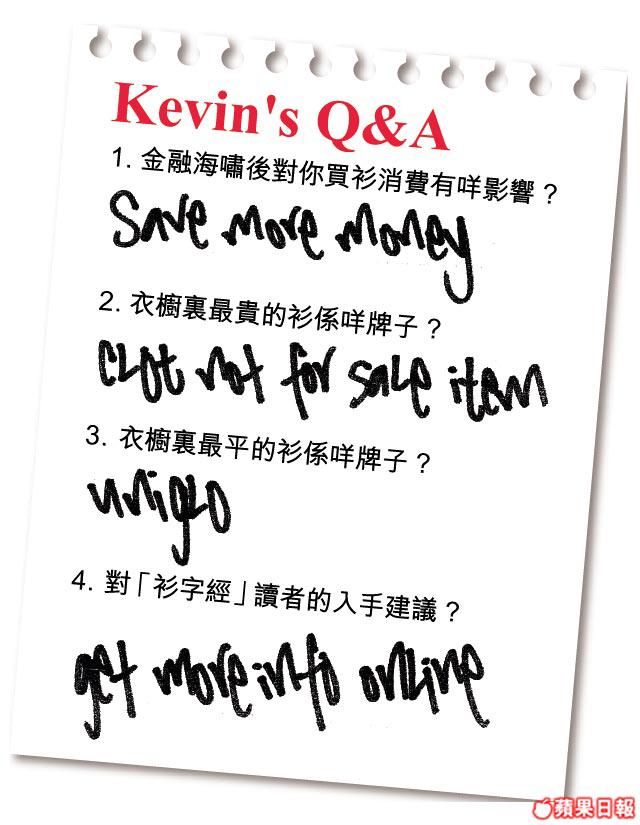 Kevin's Q&A
1. 金融海嘯後對你買衫消費有咩影響？
Save more money
2. 衣櫥裏最貴的衫係咩牌子？
CLOT not for sale item
3. 衣櫥裏最平的衫係咩牌子？
uniqlo
4. 對「衫字經」讀者的入手建議？
get more info online
蘋果日報